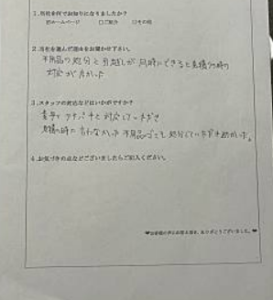 1.当社を何でお知りになりましたか?
☑ホームページ □ご紹介 □その他
2.当社を選んだ理由をお聞かせ下さい。
不用品の処分と引越しが同時にできると見積りの時の
対応が良かった
3.スタッフの対応などはいかがですか?
素早くテキパキと対応していただき
見積の時に言わなかった不用品ごとも処分していただき助かった。
4.お気づきの点などございましたらご記入ください。
♥お客様の声をお聞き致し、ありがとうございました。♥